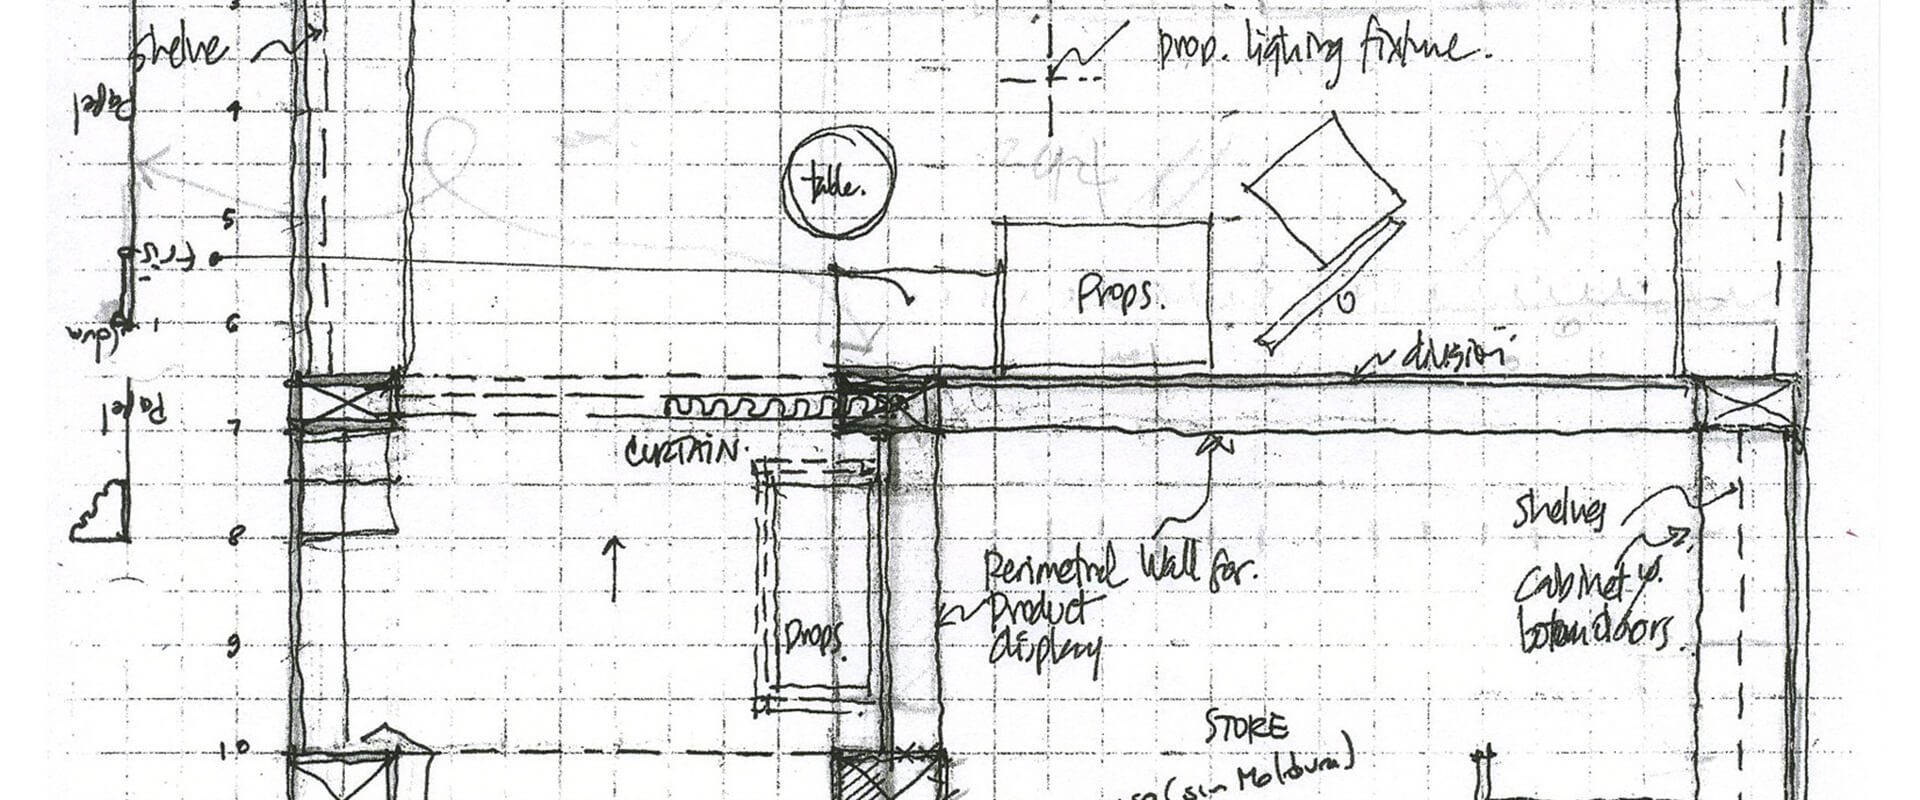 Shelve
prop. lighing fixture.
Papel
4
table.
5
Friso
Props.
6
division
7
Papel
CURTAIN.
8
Shelves
Perimetral Wall for.
Product
display
Cabinet w.
botom doors.
9
Props.
10
STORE
(sin Moldura)